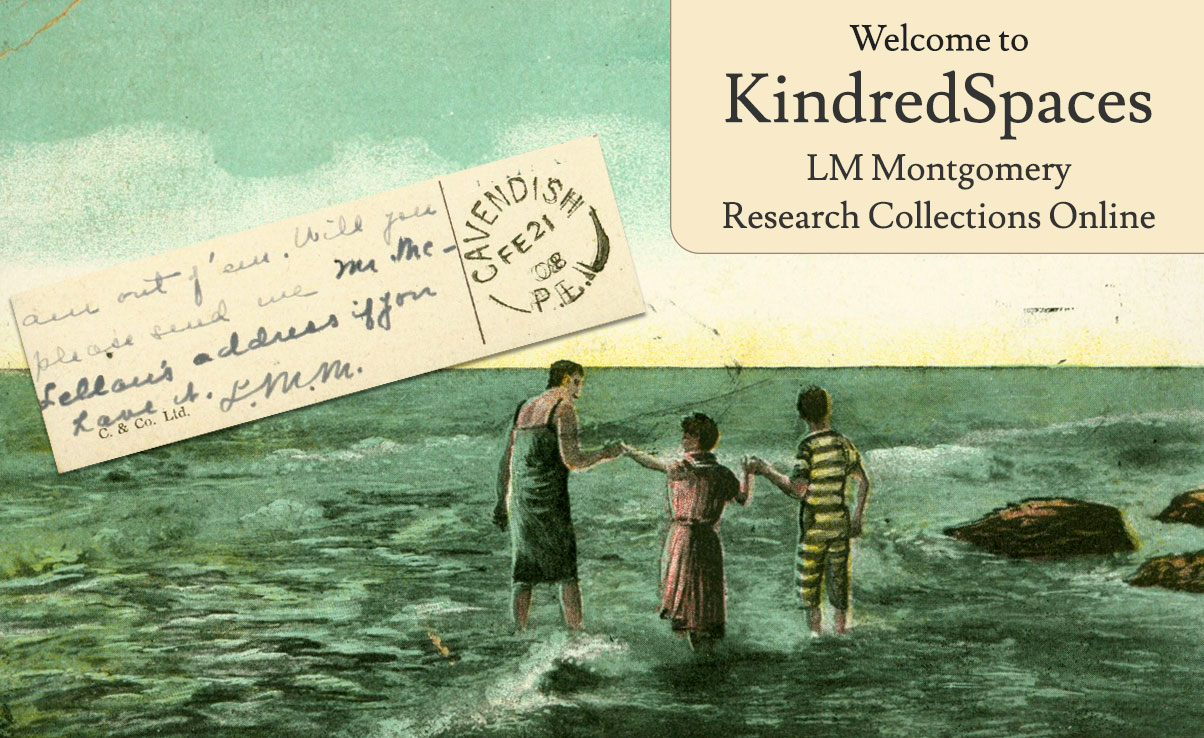 Welcome to
KindredSpaces
LM Montgomery
Research Collections Online
am out of 'em. Will you
please send me Mr. Mc-
Lellan's address if you
have it. L.M.M.
C. & Co. Ltd.
CAVENDISH
FE 21
08
P.E.I